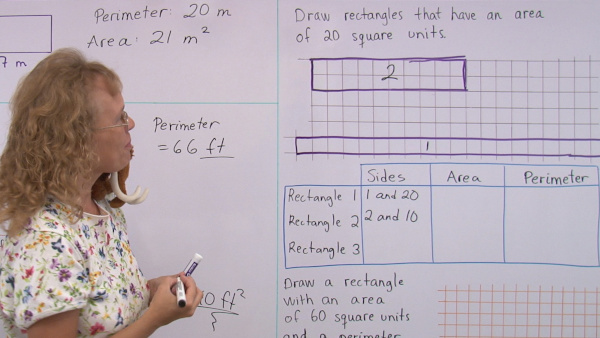 Perimeter: 20 m
Area: 21 m²
7 m
Perimeter
= 66 ft
0 ft²
Draw rectangles that have an area
of 20 square units.
2
1
Sides Area Perimeter
Rectangle 1 1 and 20
Rectangle 2 2 and 10
Rectangle 3
Draw a rectangle
with an area
of 60 square units
and a perimeter